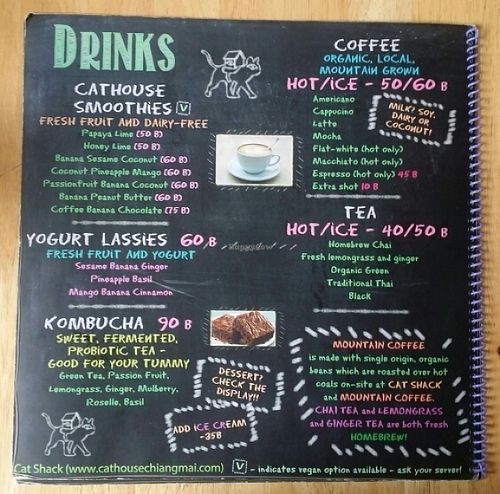 DRINKS
CATHOUSE
SMOOTHIES V
FRESH FRUIT AND DAIRY-FREE
Papaya Lime (50 B)
Honey Lime (50 B)
Banana Sesame Coconut (60 B)
Coconut Pineapple Mango (60 B)
Passionfruit Banana Coconut (60 B)
Banana Peanut Butter (60 B)
Coffee Banana Chocolate (75 B)
YOGURT LASSIES 60 B
FRESH FRUIT AND YOGURT
Sesame Banana Ginger
Pineapple Basil
Mango Banana Cinnamon
KOMBUCHA 90 B
SWEET, FERMENTED,
PROBIOTIC TEA -
GOOD FOR YOUR TUMMY
Green Tea, Passion Fruit,
Lemongrass, Ginger, Mulberry,
Roselle, Basil
DESSERT?
CHECK THE
DISPLAY!!
ADD ICE CREAM
-35B
COFFEE
ORGANIC, LOCAL,
MOUNTAIN GROWN
HOT/ICE - 50/60 B
Americano
Cappucino
Latte
Mocha
Flat-white (hot only)
Macchiato (hot only)
Espresso (hot only) 45 B
Extra shot 10 B
MILK? SOY,
DAIRY OR
COCONUT!
TEA
HOT/ICE - 40/50 B
Homebrew Chai
Fresh lemongrass and ginger
Organic Green
Traditional Thai
Black
MOUNTAIN COFFEE
is made with single origin, organic
beans which are roasted over hot
coals on-site at CAT SHACK
and MOUNTAIN COFFEE.
CHAI TEA and LEMONGRASS
and GINGER TEA are both fresh
HOMEBREW!
Cat Shack (www.cathousechiangmai.com) V - indicates vegan option available - ask your server!